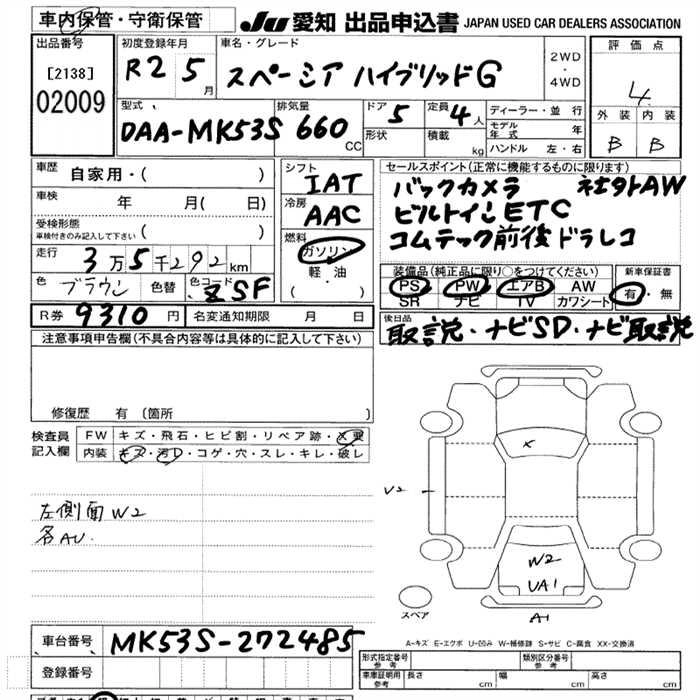 車内保管・守衛保管
JU 愛知 出品申込書 JAPAN USED CAR DEALERS ASSOCIATION
出品番号
[2138]
02009
初度登録年月
R2 5月
車名・グレード
スペーシア ハイブリッドG
2WD
・
4WD
評価点
4
外装 内装
B B
型式
DAA-MK53S
排気量
660 CC
ドア 5
定員 4人
形状
積載 kg
ディーラー・並行
モデル年式 年
ハンドル 左・右
車歴
自家用・( )
車検
年 月( 日)
受検形態
車検付きのみ記入して下さい ( )
走行
3万5千292km
色 ブラウン 色替 色コード ZSF
シフト
IAT
冷房
AAC
燃料
ガソリン
軽油
( ・ )
セールスポイント(正常に機能するものに限ります)
バックカメラ 社外AW
ビルトインETC
コムテック前後ドラレコ
装備品(純正品に限り○をつけてください)
PS PW エアB AW
SR ナビ TV カワシート
新車保証書
有・無
R券 9310円 名変通知期限 月 日
後日品
取説・ナビSD・ナビ取説
注意事項申告欄(不具合内容等は具体的に記入して下さい)
修復歴 有 〔箇所
検査員記入欄
FW キズ・飛石・ヒビ割・リペア跡・X亜
内装 キズ・汚レ・コゲ・穴・スレ・キレ・破レ
左側面W2
各AU
X
V2
W2
UA1
A1
スペア
A-キズ E-エクボ U-凹み W-補修跡 S-サビ C-腐食 XX-交換済
車台番号 MK53S-272485
登録番号
形式指定番号 参考
類別区分番号 参考
車庫証明用 参考 長さ cm 幅 cm 高さ cm